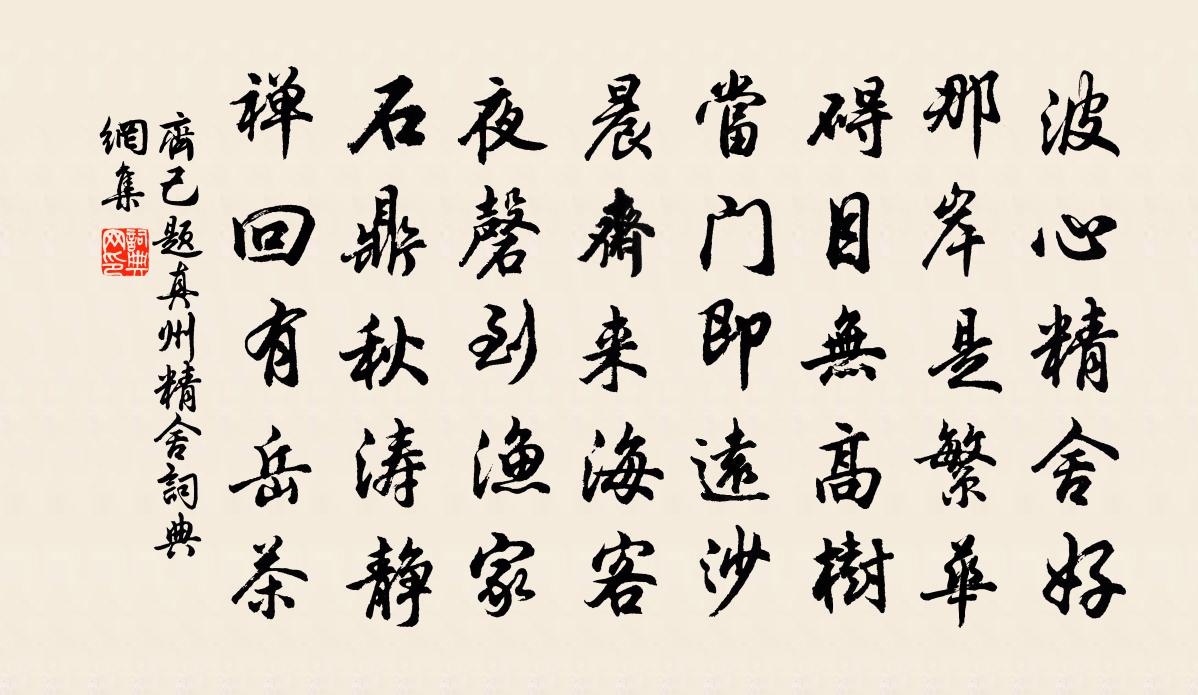 波心精舍好
那岸是繁華
碍目無高樹
當门即遠沙
晨齋来海客
夜磬到漁家
石鼎秋涛静
禅回有岳茶
齊己题真州精舍詞典
網集
詞典
网印